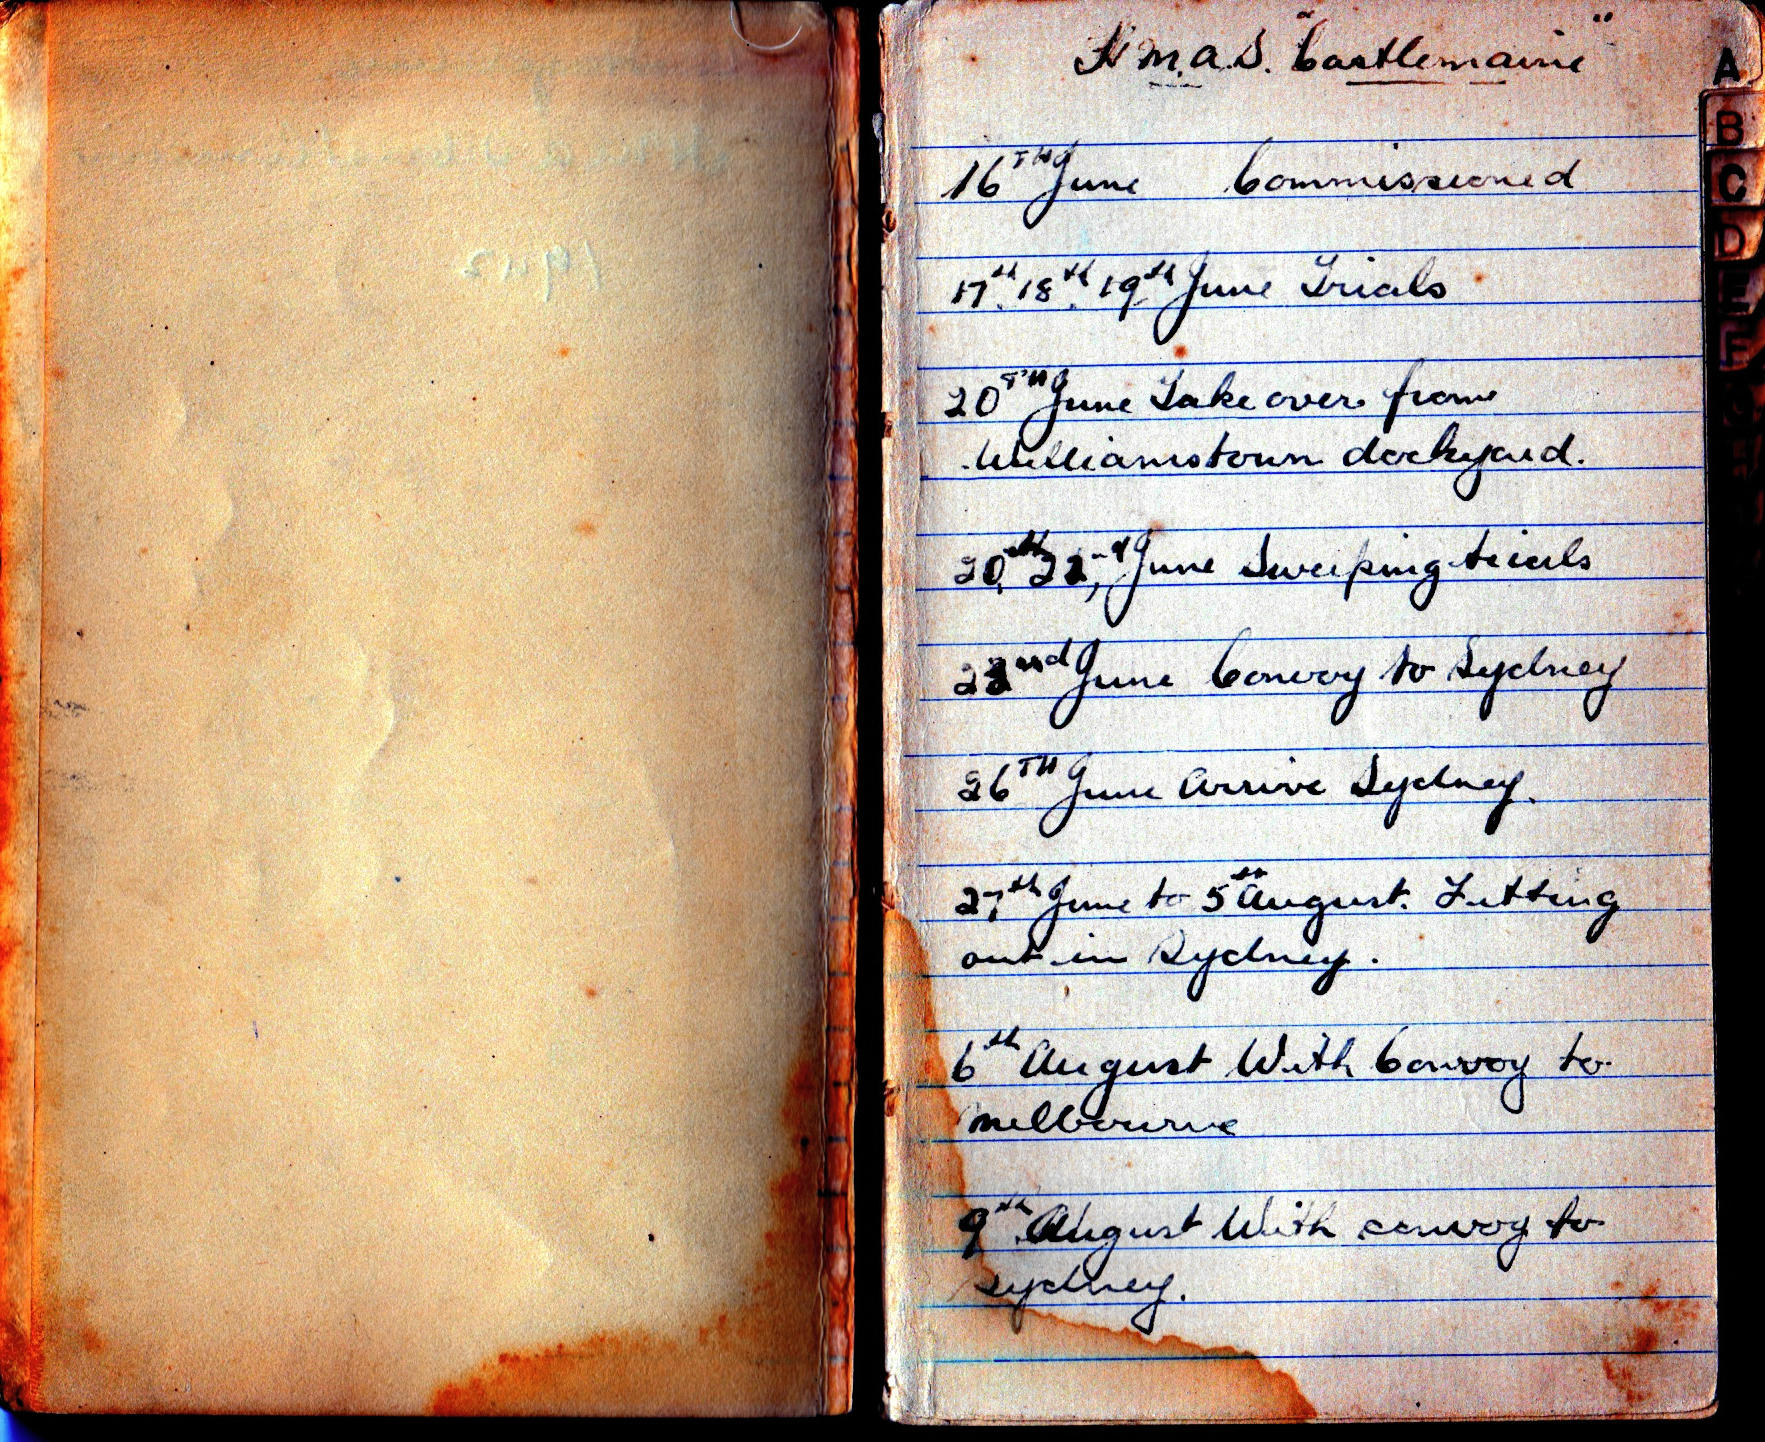 H.M.A.S. "Castlemaine"
16TH June Commissioned
17th. 18th. 19th June Trials
20TH June Take over from
Williamstown dockyard.
20th, 22,nd June Sweeping trials
23nd June Convoy to Sydney
26TH June Arrive Sydney.
27th June to 5th August. Fitting
out in Sydney.
6th August With Convoy to
Melbourne
9th August With convoy to
Sydney.
A
B
C
D
E
F
1942